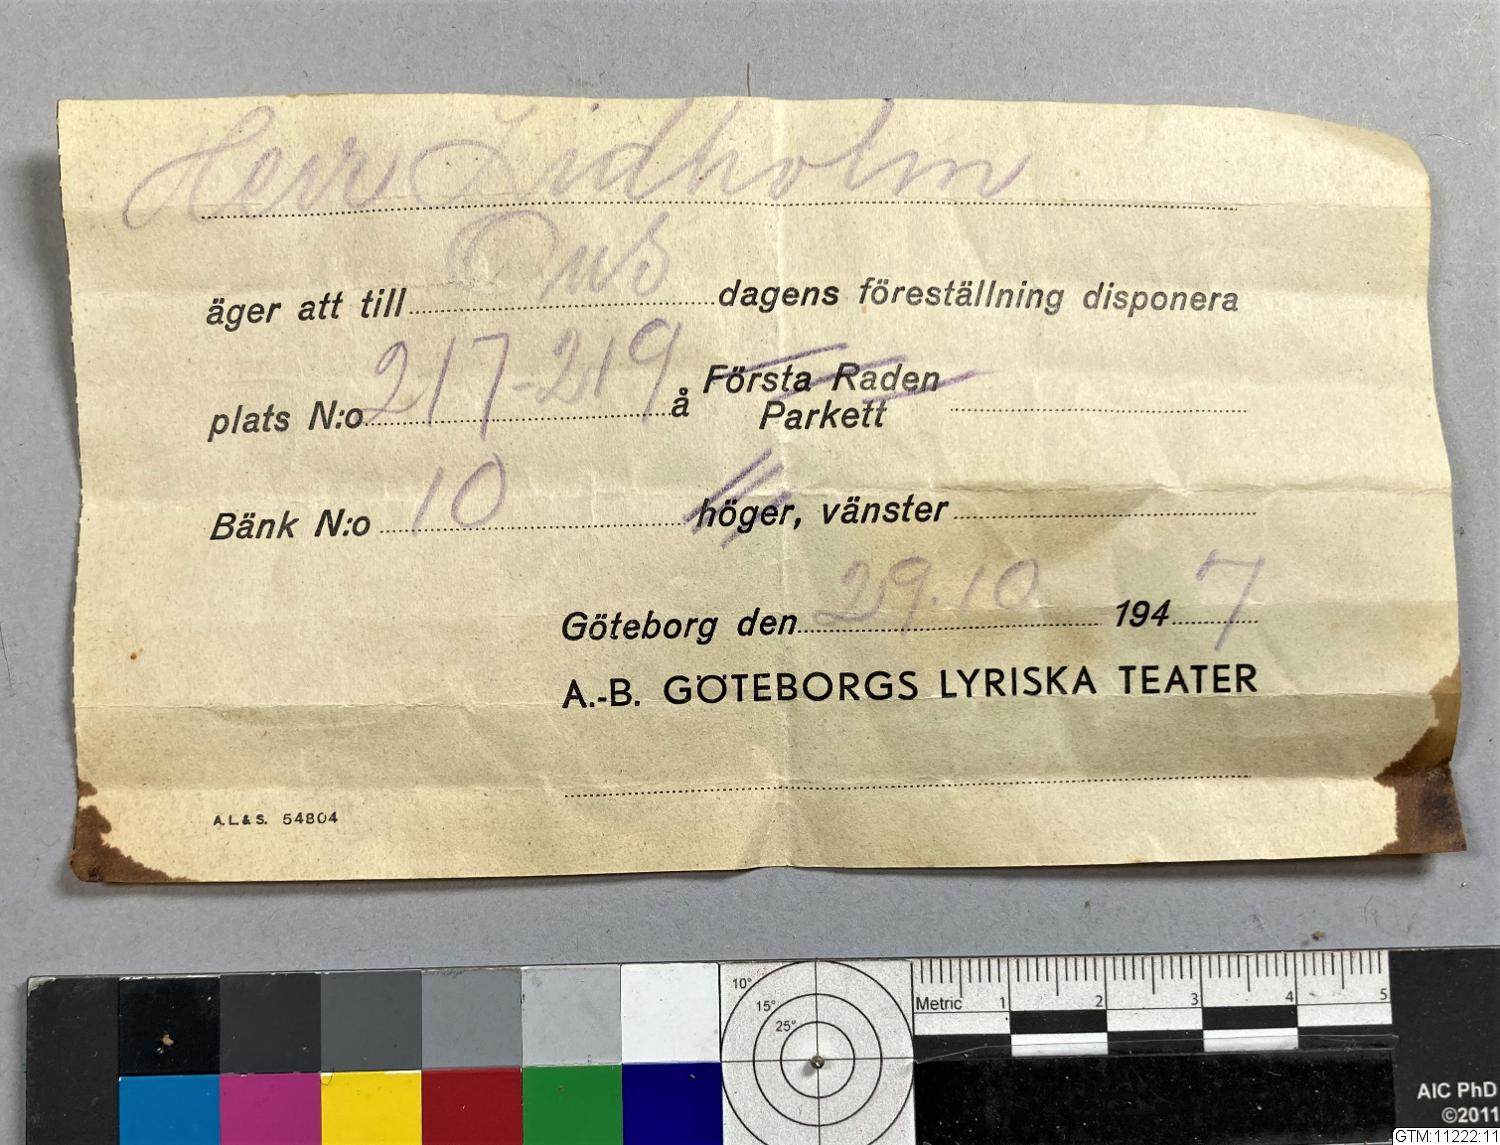 Herr Lidholm
äger att till Ons dagens föreställning disponera
plats N:o 217-219 å Första Raden
Parkett
Bänk N:o 10 höger, vänster
Göteborg den 29.10 1947
A.-B. GÖTEBORGS LYRISKA TEATER
A.L.&S. 54804
10°
15°
25°
Metric 1 2 3 4 5
AIC PhD
©2011
GTM:11222:11